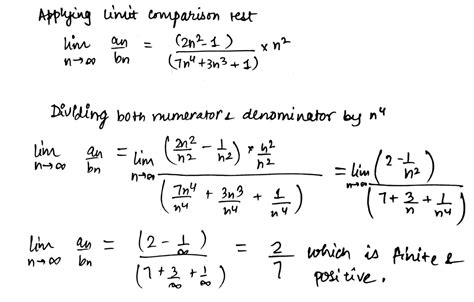 Applying limit comparison test
lim n→∞ an/bn = (2n²-1)/(7n⁴+3n³+1) × n²
Dividing both numerator & denominator by n⁴
lim n→∞ an/bn = lim n→∞ (2n²/n² - 1/n²) * n²/n² / (7n⁴/n⁴ + 3n³/n⁴ + 1/n⁴) = lim n→∞ (2-1/n²)/(7+3/n+1/n⁴)
lim n→∞ an/bn = (2-1/∞)/(7+3/∞+1/∞) = 2/7 which is finite & positive.